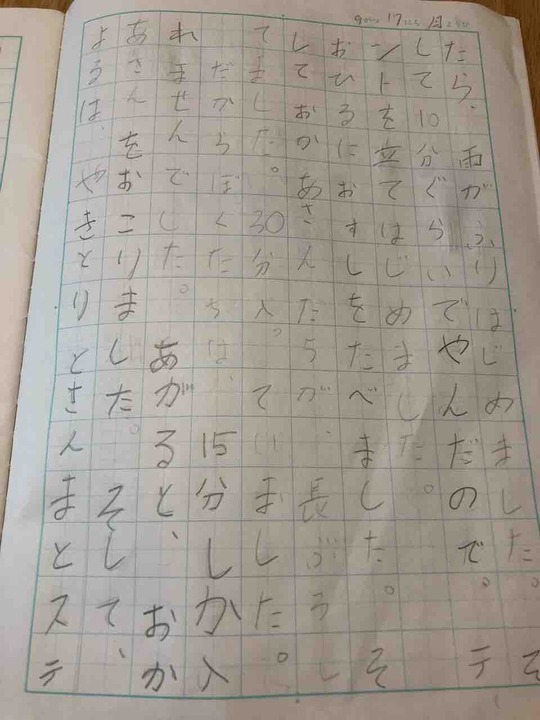 9がつ17にち月ようび
たら、雨がふりはじめました。そ
して10分ぐらいでやんだので。テ
ントを立てはじめました。
おひるにおすしをたべました。そ
しておかあさんたちが、長ぶろし
てました。30分入っていました。
だからぼくたちは、15分しか入
れませんでした。あがると、おか
あさんをおこりました。そして、
よるは、やきとりとさんまとステ